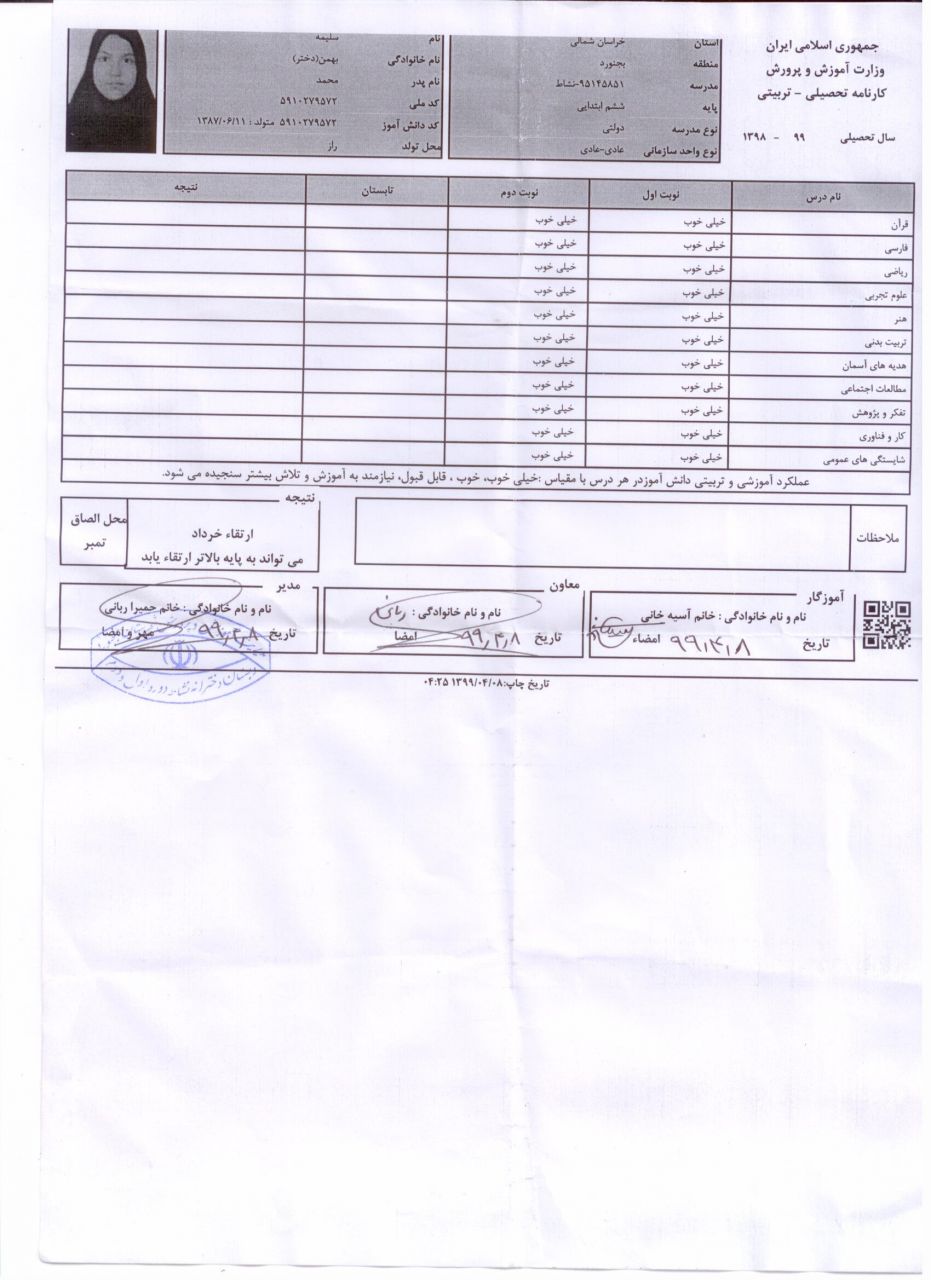 جمهوری اسلامی ایران
وزارت آموزش و پرورش
کارنامه تحصیلی - تربیتی
سال تحصیلی ۹۹ - ۱۳۹۸
استان خراسان شمالی
منطقه بجنورد
مدرسه ۹۵۱۴۵۸۵۱-نشاط
پایه ششم ابتدایی
نوع مدرسه دولتی
نوع واحد سازمانی عادی-عادی
نام سلیمه
نام خانوادگی بهمن(دختر)
نام پدر محمد
کد ملی ۵۹۱۰۲۷۹۵۷۲
کد دانش آموز ۵۹۱۰۲۷۹۵۷۲ متولد : ۱۳۸۷/۰۶/۱۱
محل تولد راز
نام درس نوبت اول نوبت دوم تابستان نتیجه
قرآن خیلی خوب خیلی خوب
فارسی خیلی خوب خیلی خوب
ریاضی خیلی خوب خیلی خوب
علوم تجربی خیلی خوب خیلی خوب
هنر خیلی خوب خیلی خوب
تربیت بدنی خیلی خوب خیلی خوب
هدیه های آسمان خیلی خوب خیلی خوب
مطالعات اجتماعی خیلی خوب خیلی خوب
تفکر و پژوهش خیلی خوب خیلی خوب
کار و فناوری خیلی خوب خیلی خوب
شایستگی های عمومی خیلی خوب خیلی خوب
عملکرد آموزشی و تربیتی دانش آموزدر هر درس با مقیاس :خیلی خوب، خوب ، قابل قبول، نیازمند به آموزش و تلاش بیشتر سنجیده می شود.
ملاحظات
نتیجه
ارتقاء خرداد
می تواند به پایه بالاتر ارتقاء یابد
محل الصاق
تمبر
آموزگار
نام و نام خانوادگی : خانم آسیه خانی
تاریخ ۹۹/۴/۸ امضاء
معاون
نام و نام خانوادگی : ربانی
تاریخ ۹۹/۴/۸ امضا
مدیر
نام و نام خانوادگی : خانم حمیرا ربانی
تاریخ ۹۹/۴/۸ مهر و امضا
دبستان دخترانه نشاط دوره اول و دوم
تاریخ چاپ:۱۳۹۹/۰۴/۰۸ ۰۴:۲۵